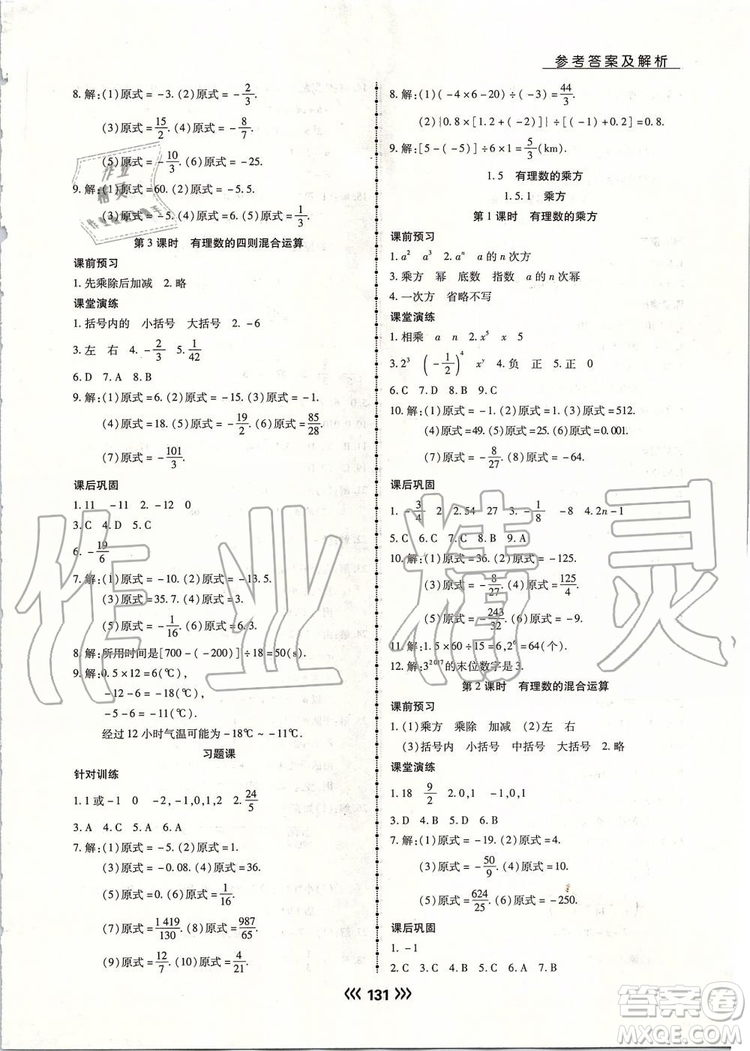 参考答案及解析
8. 解：(1)原式 = -3. (2)原式 = -2/3.
(3)原式 = 15/2. (4)原式 = -8/7.
(5)原式 = -10/3. (6)原式 = -25.
9. 解：(1)原式 = 60. (2)原式 = -5.5.
(3)原式 = -5. (4)原式 = 6. (5)原式 = 1/3.
第 3 课时 有理数的四则混合运算
课前预习
1. 先乘除后加减 2. 略
课堂演练
1. 括号内的 小括号 大括号 2. -6
3. 左 右 4. -2/3 5. 1/42
6. D 7. A 8. B
9. 解：(1)原式 = 6. (2)原式 = -15. (3)原式 = -1.
(4)原式 = 18. (5)原式 = -19/2. (6)原式 = 85/28.
(7)原式 = -101/3.
课后巩固
1. 11 -11 2. -12 0
3. C 4. D 5. C
6. -19/6
7. 解：(1)原式 = -10. (2)原式 = -13.5.
(3)原式 = 35.7. (4)原式 = -15.
(5)原式 = -1/16. (6)原式 = 6.3.
8. 解：所用时间是[700 - (-200)] ÷ 18 = 50(s).
9. 解：0.5 × 12 = 6(℃),
-12 - 6 = -18(℃),
-5 - 6 = -11(℃).
经过 12 小时气温可能为 -18℃ ~ -11℃.
习题课
针对训练
1. 1 或 -1 0 -2, -1,0,1,2 2. 24/5
3. A 4. C 5. A 6. C
7. 解：(1)原式 = -5. (2)原式 = 1.
(3)原式 = -0.08. (4)原式 = 36.
(5)原式 = 0. (6)原式 = 1/16.
(7)原式 = 1 419/130. (8)原式 = 987/65.
(9)原式 = 214/21.
8. 解：(1)(-4 × 6 - 20) ÷ (-3) = 44/3.
(2)|0.8 × [1.2 + (-2)]| ÷ [(-1) + 0.2] = 0.8.
9. 解：[5 - (-5)] ÷ 6 × 1 = 5/3(km).
1.5 有理数的乘方
1.5.1 乘方
第 1 课时 有理数的乘方
课前预习
1. a² a³ 2. aⁿ a 的 n 次方
3. 乘方 幂 底数 指数 a 的 n 次方
4. 一次方 省略不写
课堂演练
1. 相乘 a n 2. x⁵ x 5
3. 2³ (-1/2)⁴ xʸ 4. 负 正 5. 正
6. C 7. C 8. B 9. C
10. 解：(1)原式 = -1. (2)原式 = 1. (3)原式 = 512.
(4)原式 = 49. (5)原式 = 25. (6)原式 = 0.001.
(7)原式 = -8/27. (8)原式 = -64.
课后巩固
1. -3/4 2 2. 54 27 3. -1/8 -8 4. 2n - 1
5. D 6. B 7. C 8. B 9. A
10. 解：(1)原式 = 36. (2)原式 = -125.
(3)原式 = -8/27. (4)原式 = 125/4.
(5)原式 = -243/32. (6)原式 = -9.
11. 解：1.5 × 60 ÷ 15 = 6, 2⁶ = 64(个).
12. 解：3²⁰¹⁷ 的末位数字是 3.
第 2 课时 有理数的混合运算
课前预习
1. (1)乘方 乘除 加减 (2)左 右
(3)括号内 小括号 中括号 大括号 2. 略
课堂演练
1. 18 9/2 2. 0,1 -1,0,1
3. D 4. B 5. B 6. D
7. 解：(1)原式 = -19. (2)原式 = -1.
(3)原式 = -50/9. (4)原式 = -9.
(5)原式 = 624/25. (6)原式 = -250.
课后巩固
1. -1
2. C 3. C 4. D 5. C 6. A
131
作业精灵
答案圈
MXQE.COM